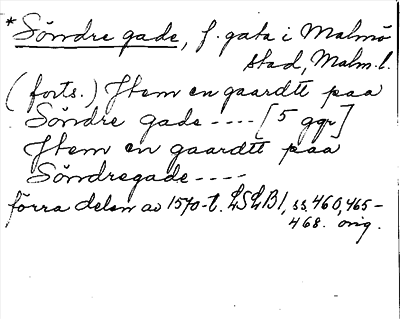 *Söndre gade, f. gata i Malmö
stad, Malm.l.
(forts.) Jtem en gaardtt paa
Söndre gade ---- [5 ggr]
Jtem en gaardtt paa
Söndregade ----
förra delen av 1570-t. LSLB1, ss. 460, 465-
468. orig.